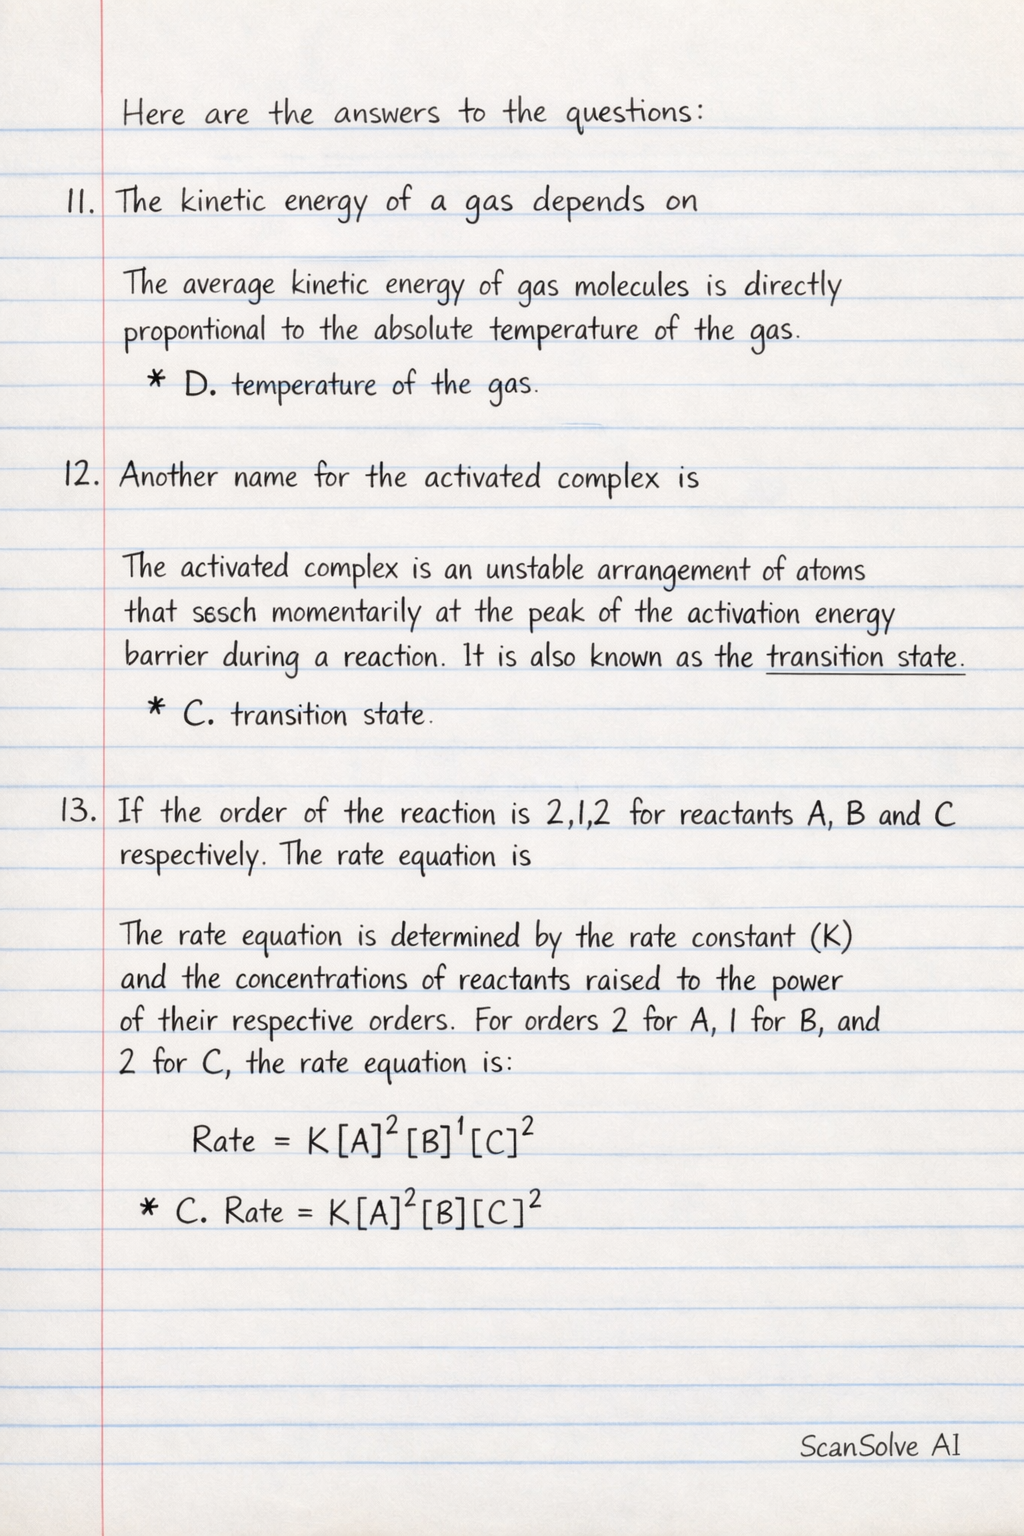 Here are the answers to the questions:
11. The kinetic energy of a gas depends on
The average kinetic energy of gas molecules is directly
propontional to the absolute temperature of the gas.
* D. temperature of the gas.
12. Another name for the activated complex is
The activated complex is an unstable arrangement of atoms
that sesch momentarily at the peak of the activation energy
barrier during a reaction. It is also known as the transition state.
* C. transition state.
13. If the order of the reaction is 2,1,2 for reactants A, B and C
respectively. The rate equation is
The rate equation is determined by the rate constant (K)
and the concentrations of reactants raised to the power
of their respective orders. For orders 2 for A, 1 for B, and
2 for C, the rate equation is:
Rate = K[A]²[B]¹[C]²
* C. Rate = K[A]²[B][C]²
ScanSolve AI